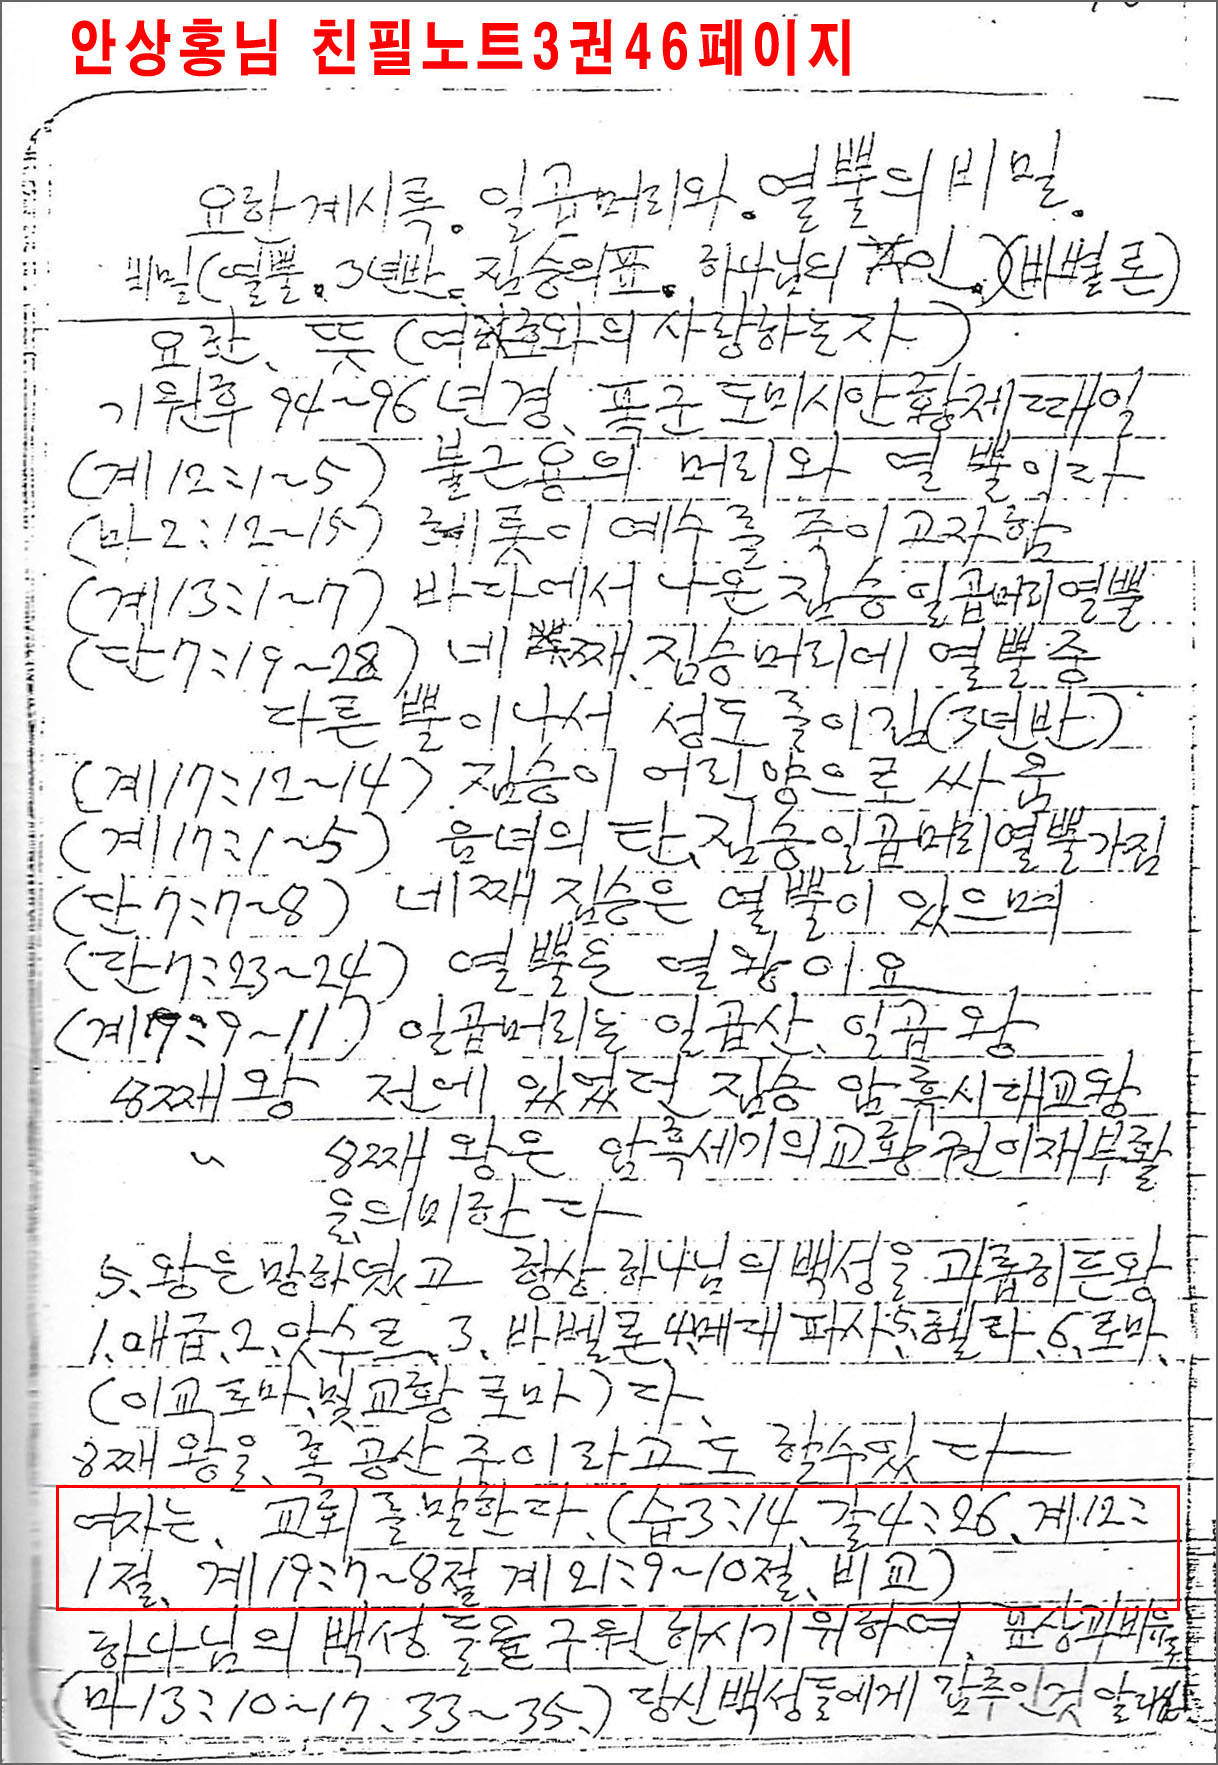 안상홍님 친필노트3권46페이지
요한계시록. 일곱머리와. 열뿔의비밀.
비밀(열뿔. 3년반. 짐승의표. 하나님의 인.)(바벨론)
요한, 뜻 (여호와의 사랑하는자)
기원후 94~96년경, 폭군 도미시안황제때일
(계12:1~5) 붉근용의 머리와 열뿔이라
(마2:12~15) 헤롯이 예수를 죽이고자함
(계13:1~7) 바다에서 나온 짐승일곱머리열뿔
(단7:19~28) 네째, 짐승머리에 열뿔중
다른뿔이나서 성도를이김(3년반)
(계17:12~14) 짐승이 어린양으로 싸움
(계17:1~5) 음녀의 탄, 짐승일곱머리열뿔가짐
(단7:7~8) 네째짐승은 열뿔이 있으며
(단7:23~24) 열뿔은 열왕이요
(계17:9~11) 일곱머리는 일곱산, 일곱왕
8째왕 전에 있었던 짐승 암흑시대교황
〃 8째왕은 암흑세기의교황권이재부활
을의미한다
5.왕은망하였고 항상하나님의백성을 괴롭히든왕
1.애급,2.앗수르,3.바벨론,4.메대파사,5.헬라,6.로마,
(이교로마,및교황로마)다,
8째왕을, 혹 공산주이라고도 할수있다
여자는, 교회를말한다,(습3:14, 갈4:26, 계12:
1절, 계19:7~8절 계21:9~10절, 비교)
하나님의 백성들을 구원하시기위하여, 표상과비유로
마13:10~17, 33~35,) 당신백성들에게 감추인것